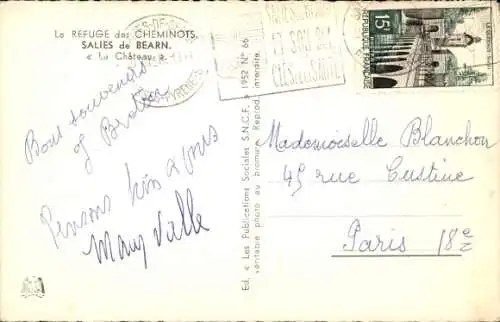 Le REFUGE des CHEMINOTS
SALIES de BEARN.
« Le Château ».
Bons souvenirs
Pensons bien à vous
Ed. « Les Publications Sociales S.N.C.F. » 1952 N° 66
véritable photo au bromure Reprod. interdite.
15F
REPUBLIQUE FRANÇAISE
Mademoiselle Blanchon
45 rue Custine
Paris 18e